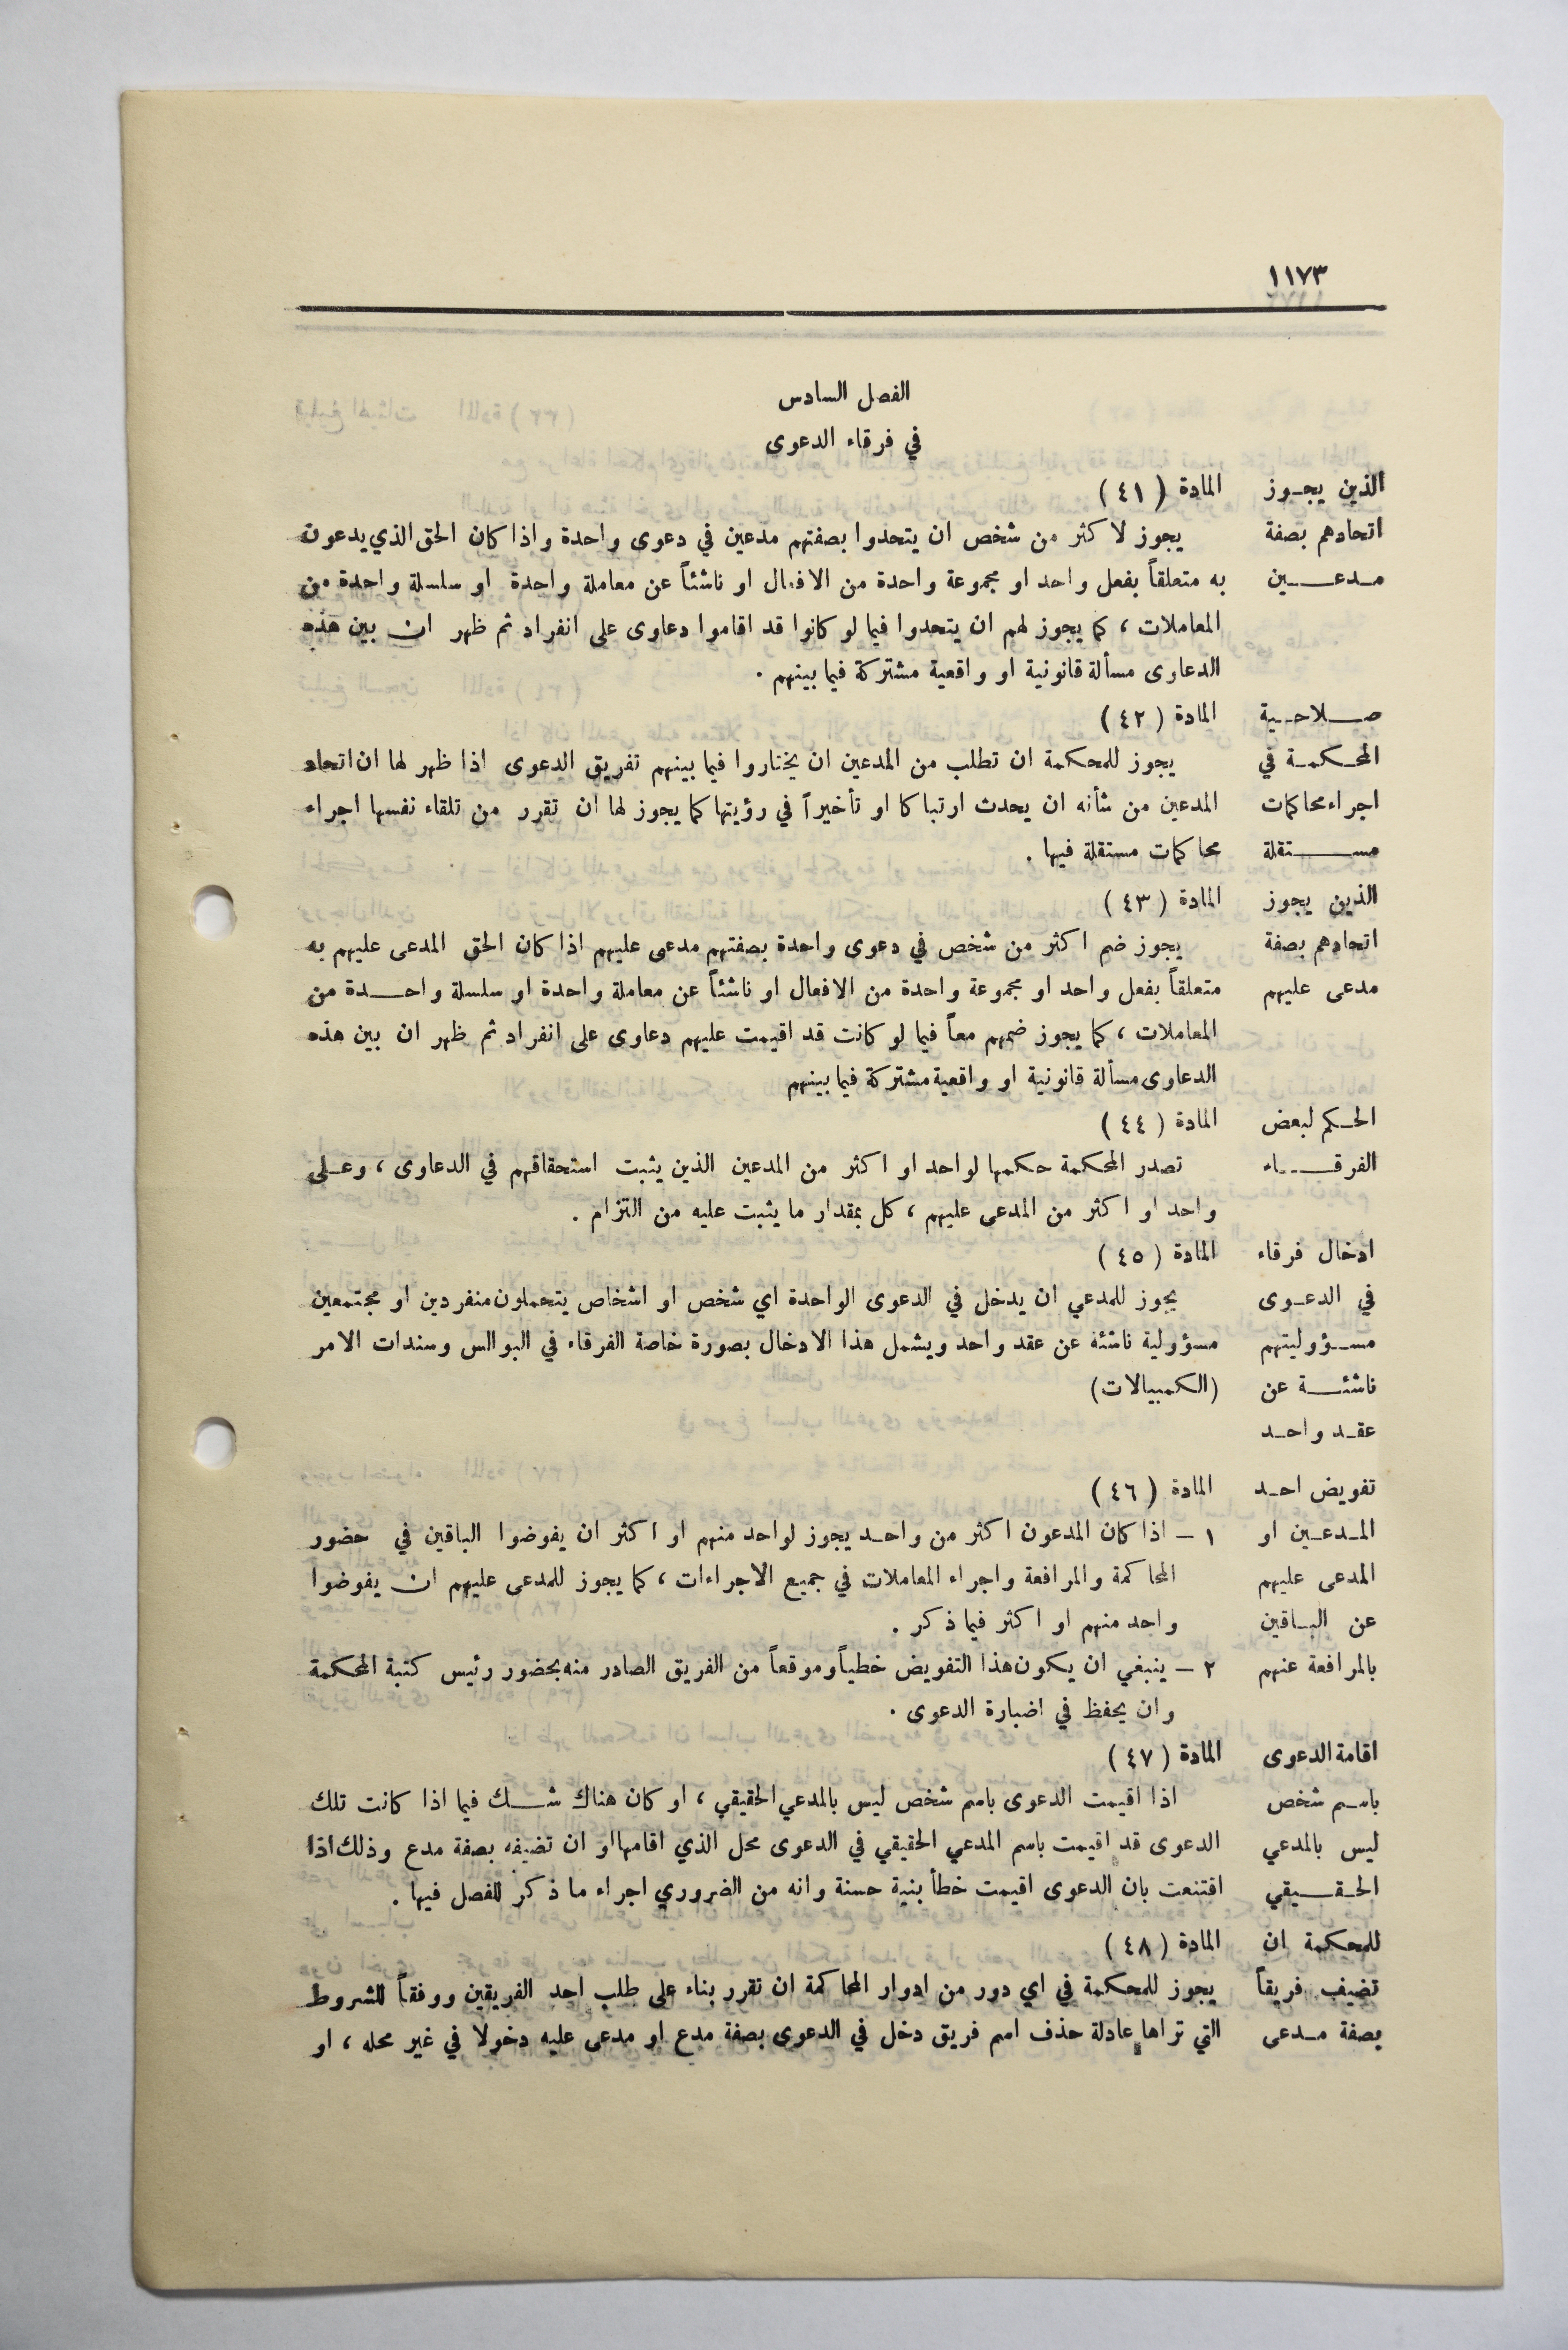 ١١٧٣
الفصل السادس
في فرقاء الدعوى
الذين يجوز المادة (٤١)
اتحادهم بصفة يجوز لاكثر من شخص ان يتحدوا بصفتهم مدعين في دعوى واحدة واذا كان الحق الذي يدعون
مدعين به متعلقاً بفعل واحد او مجموعة واحدة من الافعال او ناشئاً عن معاملة واحدة او سلسلة واحدة من
المعاملات ، كما يجوز لهم ان يتحدوا فيما لو كانوا قد اقاموا دعاوى على انفراد ثم ظهر ان بين هذه
الدعاوى مسألة قانونية او واقعية مشتركة فيما بينهم .
صلاحية المادة (٤٢)
المحكمة في يجوز للمحكمة ان تطلب من المدعين ان يختاروا فيما بينهم تفريق الدعوى اذا ظهر لها ان اتحاد
اجراء محاكمات المدعين من شأنه ان يحدث ارتباكا او تأخيراً في رؤيتها كما يجوز لها ان تقرر من تلقاء نفسها اجراء
مستقلة محاكمات مستقلة فيها .
الذين يجوز المادة (٤٣)
اتحادهم بصفة يجوز ضم اكثر من شخص في دعوى واحدة بصفتهم مدعى عليهم اذا كان الحق المدعى عليهم به
مدعى عليهم متعلقاً بفعل واحد او مجموعة واحدة من الافعال او ناشئاً عن معاملة واحدة او سلسلة واحدة من
المعاملات ، كما يجوز ضمهم معاً فيما لو كانت قد اقيمت عليهم دعاوى على انفراد ثم ظهر ان بين هذه
الدعاوى مسألة قانونية او واقعية مشتركة فيما بينهم
الحكم لبعض المادة (٤٤)
الفرقاء تصدر المحكمة حكمها لواحد او اكثر من المدعين الذين يثبت استحقاقهم في الدعاوى ، وعلى
واحد او اكثر من المدعى عليهم ، كل بمقدار ما يثبت عليه من التزام .
ادخال فرقاء المادة (٤٥)
في الدعوى يجوز للمدعي ان يدخل في الدعوى الواحدة اي شخص او اشخاص يتحملون منفردين او مجتمعين
مسؤوليتهم مسؤولية ناشئة عن عقد واحد ويشمل هذا الادخال بصورة خاصة الفرقاء في البوالس وسندات الامر
ناشئة عن (الكمبيالات)
عقد واحد
تفويض احد المادة (٤٦)
المدعين او ١ – اذا كان المدعون اكثر من واحد يجوز لواحد منهم او اكثر ان يفوضوا الباقين في حضور
المدعى عليهم المحاكمة والمرافعة واجراء المعاملات في جميع الاجراءات ، كما يجوز للمدعى عليهم ان يفوضوا
عن الباقين واحد منهم او اكثر فيما ذكر .
بالمرافعة عنهم ٢ – ينبغي ان يكون هذا التفويض خطياً وموقعاً من الفريق الصادر منه بحضور رئيس كتبة المحكمة
وان يحفظ في اضبارة الدعوى .
اقامة الدعوى المادة (٤٧)
باسم شخص اذا اقيمت الدعوى باسم شخص ليس بالمدعي الحقيقي ، او كان هناك شك فيما اذا كانت تلك
ليس بالمدعي الدعوى قد اقيمت باسم المدعي الحقيقي في الدعوى محل الذي اقامها او ان تضيفه بصفة مدع وذلك اذا
الحقيقي اقتنعت بان الدعوى اقيمت خطأ بنية حسنة وانه من الضروري اجراء ما ذكر للفصل فيها .
للمحكمة ان المادة (٤٨)
تضيف فريقاً يجوز للمحكمة في اي دور من ادوار المحاكمة ان تقرر بناء على طلب احد الفريقين ووفقاً للشروط
بصفة مدعى التي تراها عادلة حذف اسم فريق دخل في الدعوى بصفة مدع او مدعى عليه دخولا في غير محله ، او